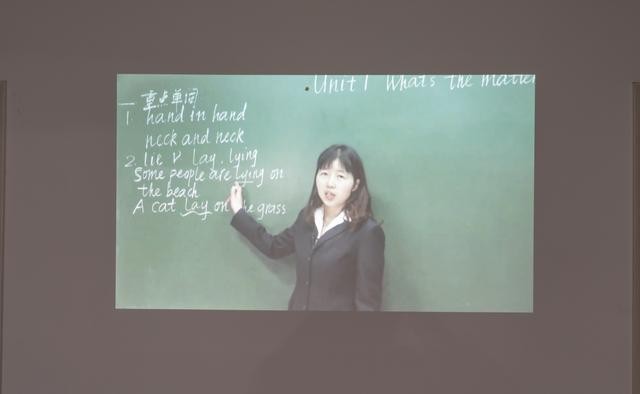 Unit 1 What's the matter
一 重点单词
1. hand in hand
neck and neck
2. lie v lay, lying
Some people are lying on
the beach
A cat lay on the grass